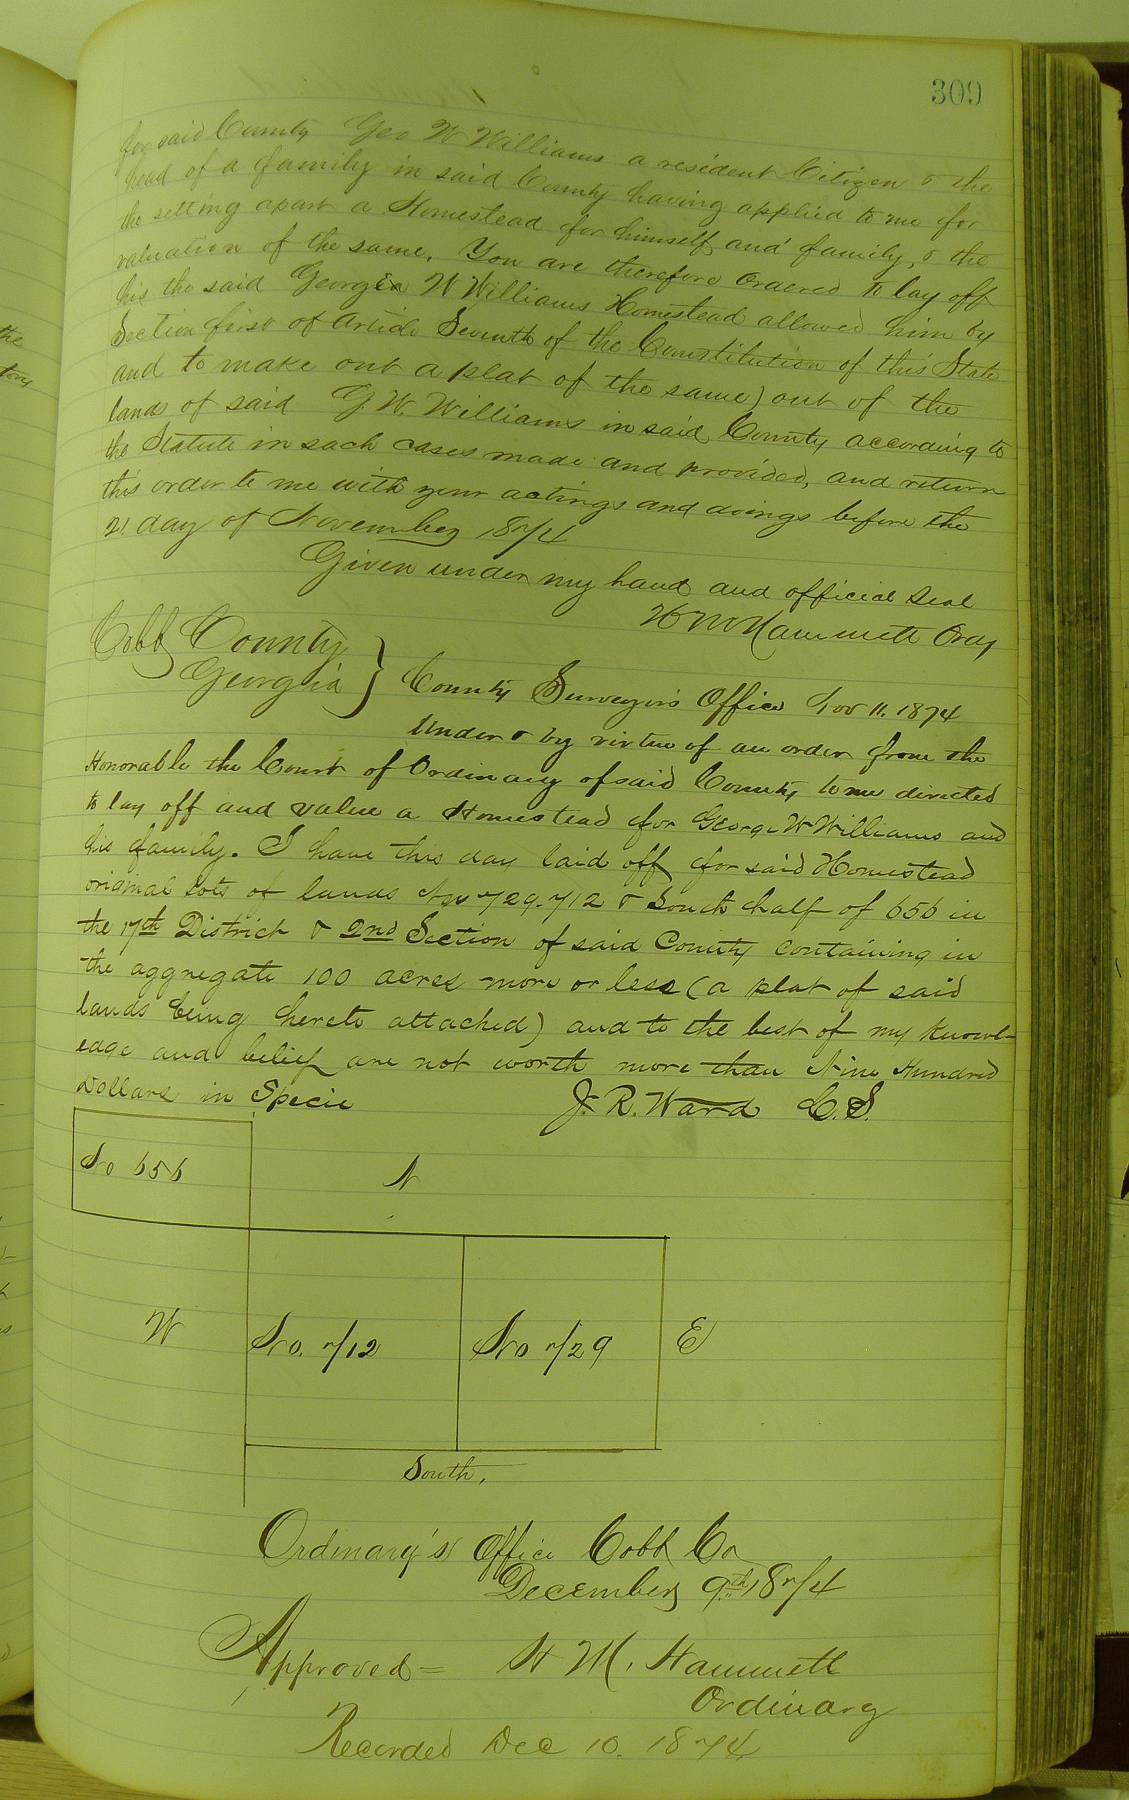 309
for said County Geo W Williams a resident Citizen & the
head of a family in said County having applied to me for
the setting apart a Homestead for himself and family, & the
valuation of the same. You are therefore ordered to lay off
his the said George W Williams Homestead allowed him by
Section first of Article Seventh of the Constitution of this State
and to make out a plat of the same) out of the
lands of said G. W. Williams in said County according to
the Statute in such cases made and provided, and return
this order to me with your actings and doings before the
21 day of November 1874
Given under my hand and official Seal
H M Hammett Ordy
Cobb County
Georgia } County Surveyors Office Nov 11. 1874
Under & by virtue of an order from the
Honorable the Court of Ordinary of said County to me directed
to lay off and value a Homestead for George W Williams and
his family. I have this day laid off for said Homestead
original lots of lands Nos 729-712 & South half of 656 in
the 17th District & 2nd Section of said County containing in
the aggregate 100 acres more or less (a plat of said
lands being hereto attached) and to the best of my knowl-
edge and belief are not worth more than Nine Hundred
Dollars in Specie J. R. Ward C. S.
No 656
N
W
No. 712
No 729
E
South.
Ordinary's Office Cobb Co
December 9th 1874
Approved = H M. Hammett
Ordinary
Recorded Dec 10. 1874
the